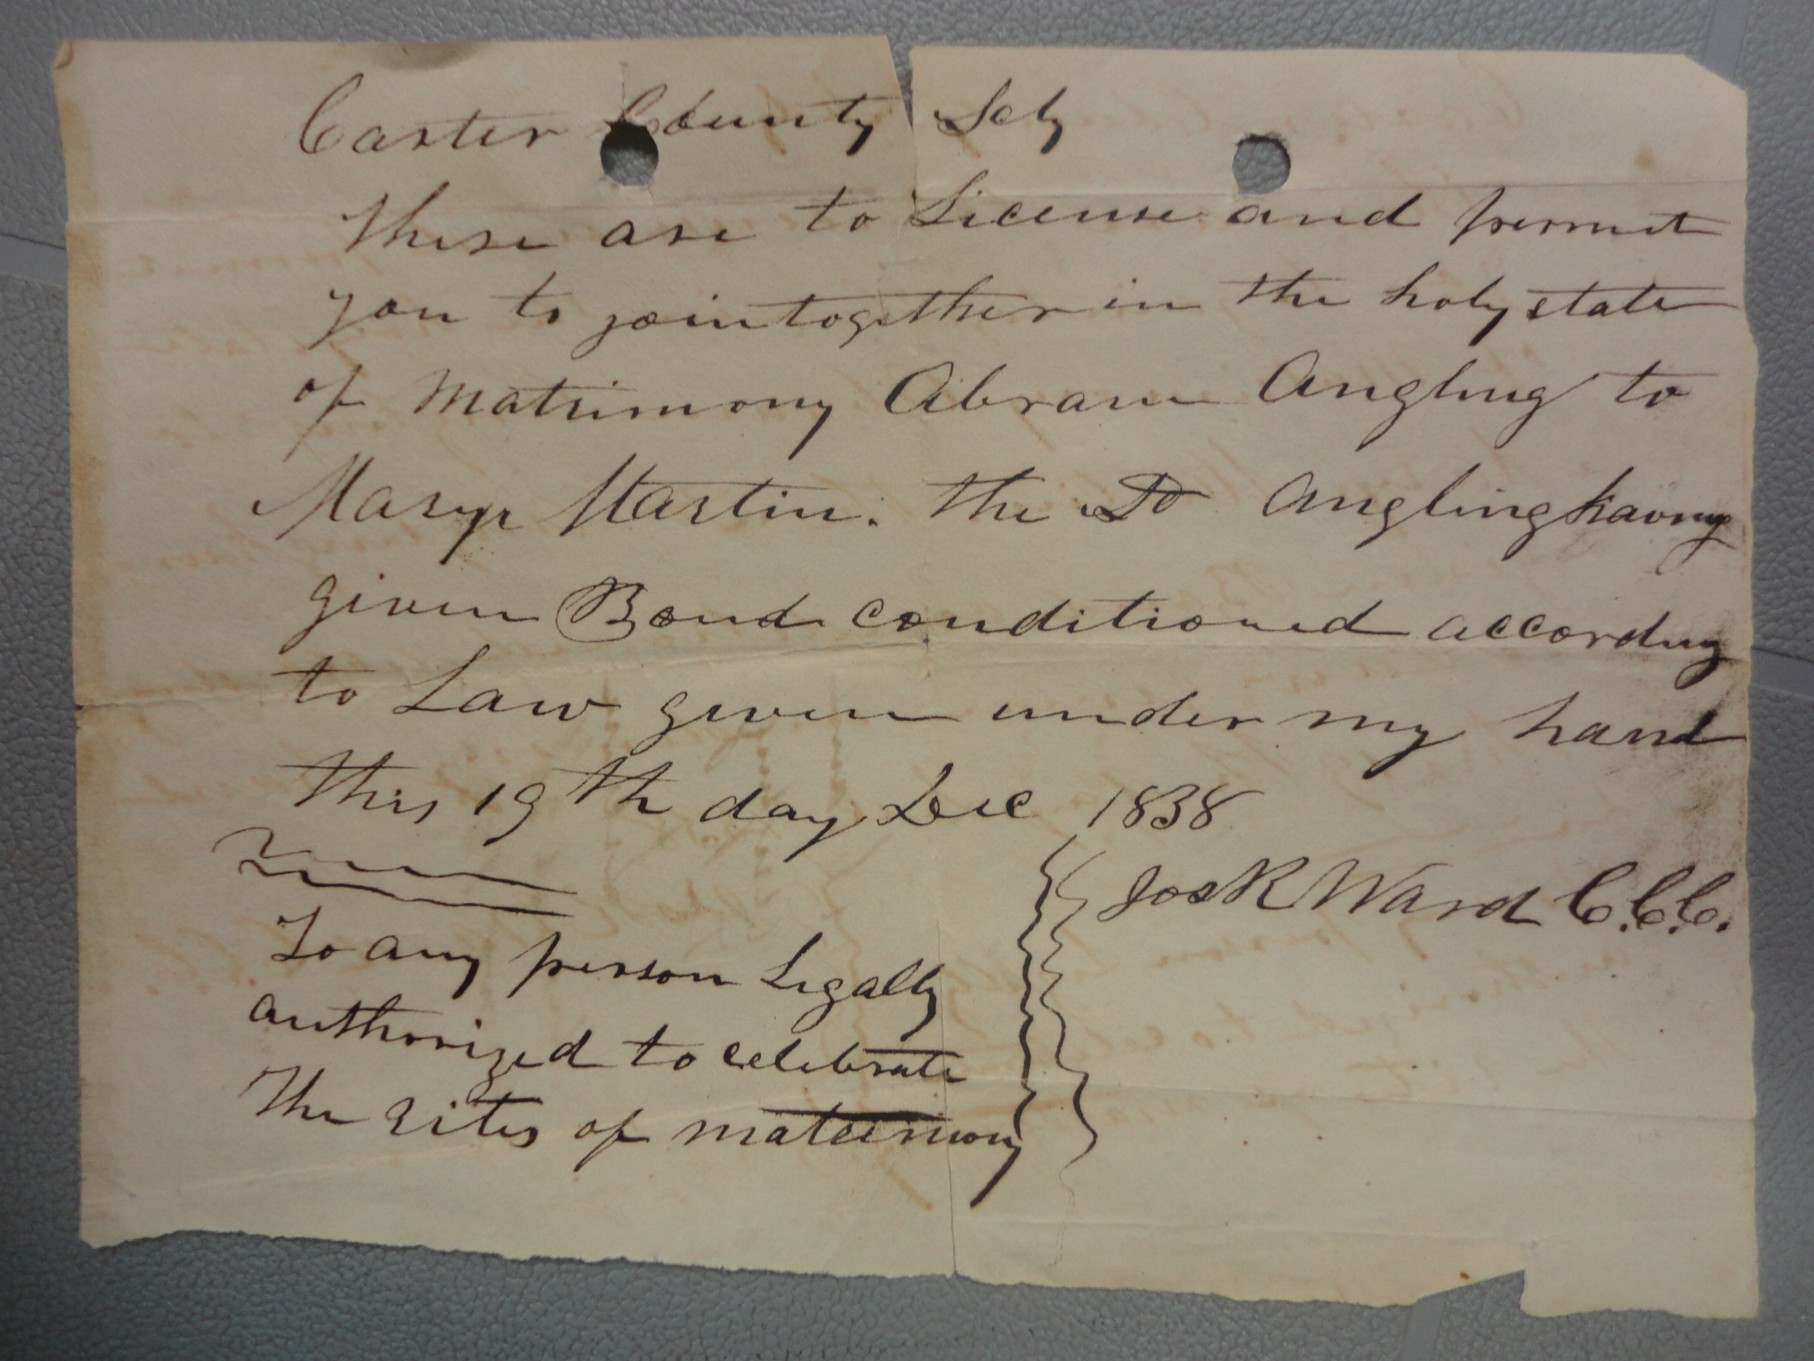 Carter County Scty
These are to License and permit
you to join together in the holy state
of Matrimony Abram Angling to
Mary Martin. the Sd Angling haveing
given Bond conditioned according
to Law given under my hand
this 19th day Dec 1838
Jos R Ward C.C.C.
To any person Legally
authorized to celebrate
The rites of matrimony